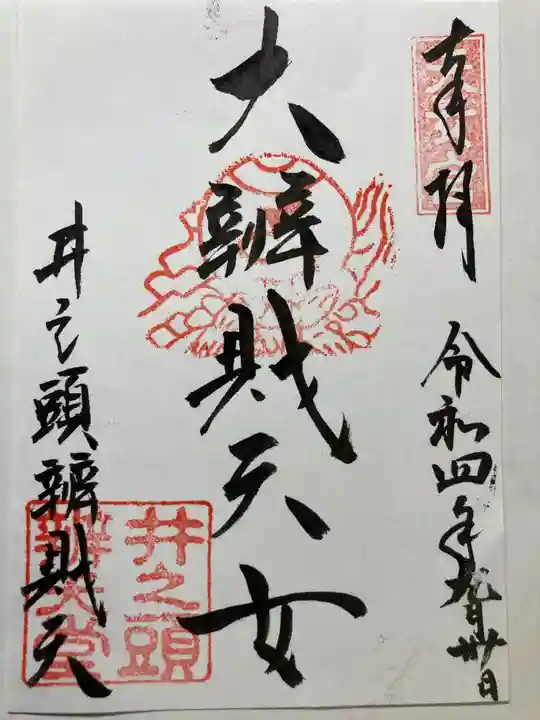 奉拝
令和四年九月卅日
大辨財天女
井之頭辨財天
井之頭
辨天堂